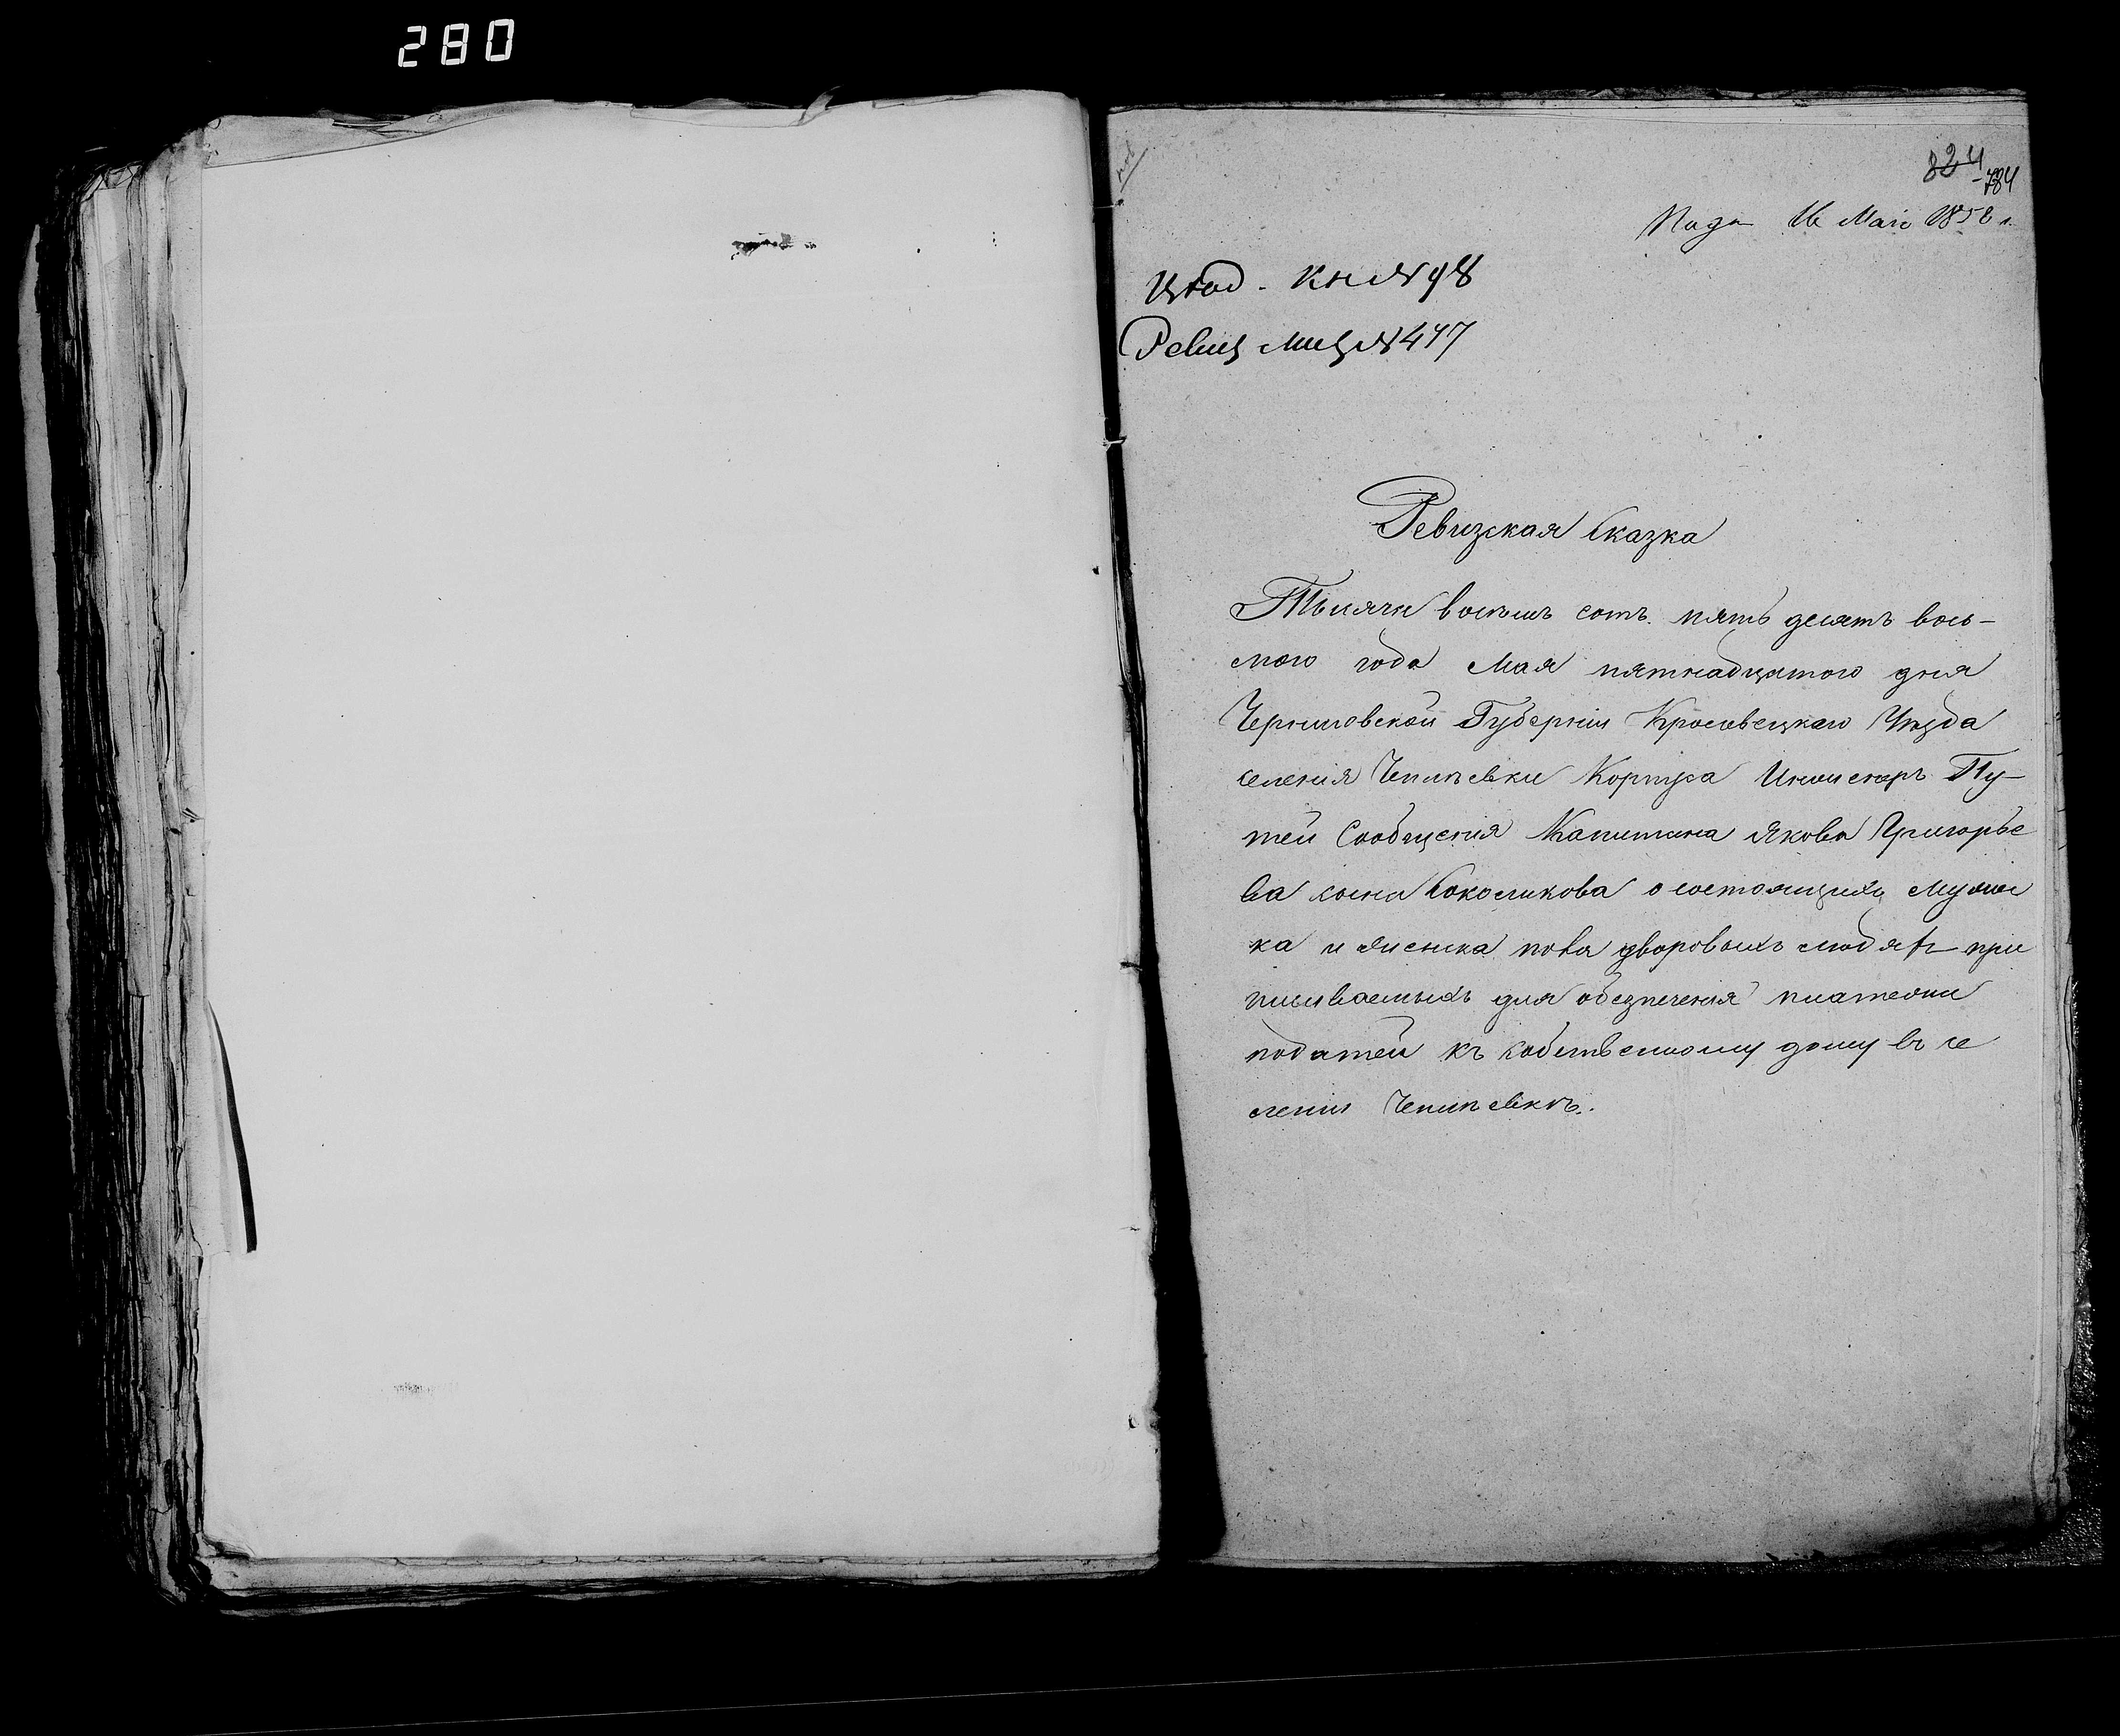 280
824
784
Пода 16 Мая 1858 г.
Кн № 98
Ревиз № 447
Ревизская Сказка
Тысяча восемь сотъ пять десятъ вось-
мого года Мая пятнадцатого дня
Черниговской Губернии Кролевецкаго Уезда
селения Чепліевки Корпуса Инженеръ Пу-
тей Сообщения Капитана Якова Григорье
ва сына Соколикова о состоящихъ мужес
ка и женска пола дворовыхъ людяхъ при
писываемыхъ для обезпечения платежи
податей къ собственному дому въ се
лении Чепліевкъ.